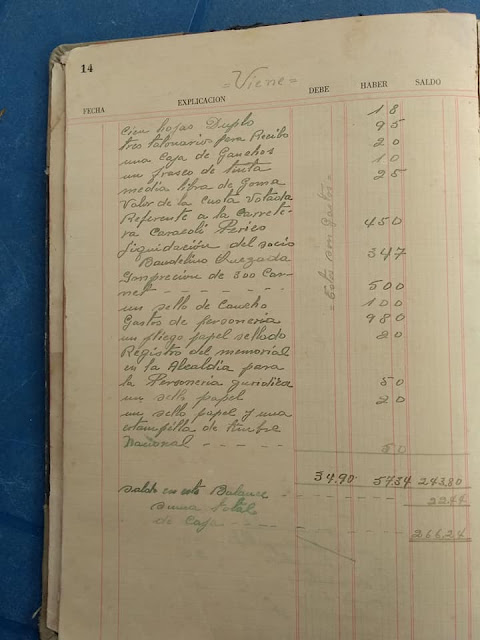 14
= Viene =
FECHA EXPLICACION DEBE HABER SALDO
Cien hojas Duplo 18
tres talonarios para Recibo 95
una Caja de Ganchos 20
un frasco de tinta 10
media libra de Goma 25
Valor de la Cuota Votada
Referente a la Carrete-
ra Caracoli Perico 450
Liquidación del socio
Baudelino Quezada 347
Impreción de 300 Car-
net - - - - - - - - - 500
un sello de Caucho 100
Gastos de personeria 980
un pliego papel sellado 20
Registro del memorial
en la Alcaldia para
la Personeria guridica 50
un sello papel 20
un sello papel y una
estampilla de timbre
Nacional - - - - - 50
3490 5734 24380
saldo en este Balance - - - 2244
suma total
de Caja - - - - 26624